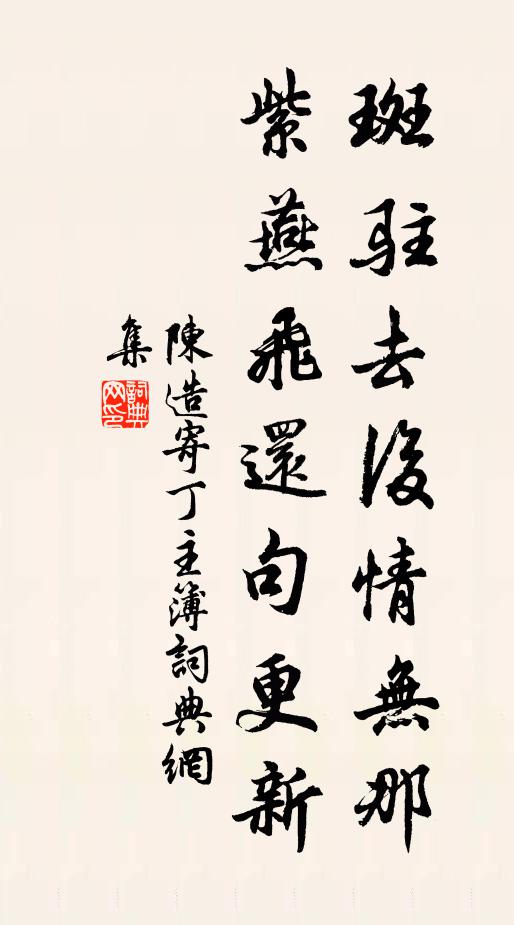 斑駐去後情無那
紫燕飛還句更新
陳造寄丁主簿詞典網
集
詞典
网印